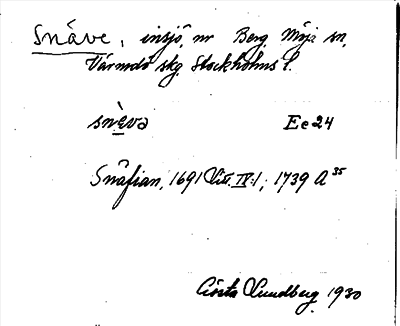 Snäve, insjö, nr Berg, Möja sn,
Värmdö skg. Stockholms l.
snèva Ee24
Snäfian, 1691 Lit. IV:1; 1739 A 35
Gösta Lundberg 1930